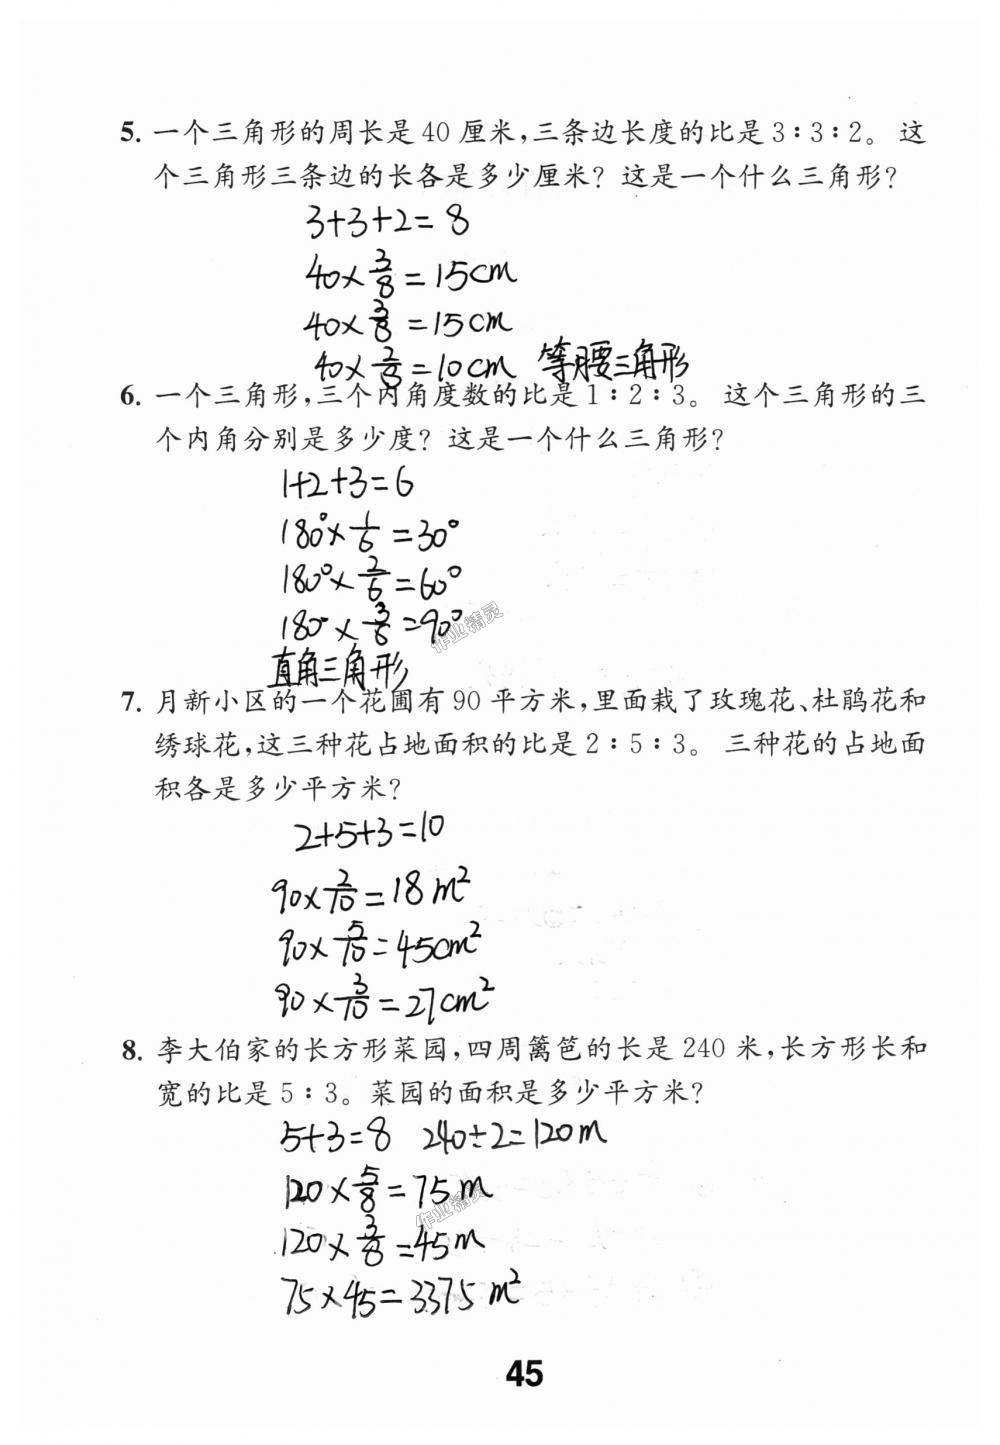 5. 一个三角形的周长是40厘米,三条边长度的比是3∶3∶2。这
个三角形三条边的长各是多少厘米? 这是一个什么三角形?
3+3+2=8
40×3/8=15cm
40×3/8=15cm
40×2/8=10cm 等腰三角形
6. 一个三角形,三个内角度数的比是1∶2∶3。这个三角形的三
个内角分别是多少度? 这是一个什么三角形?
1+2+3=6
180°×1/6=30°
180°×2/6=60°
180°×3/6=90°
作业精灵
直角三角形
7. 月新小区的一个花圃有90平方米,里面栽了玫瑰花、杜鹃花和
绣球花,这三种花占地面积的比是2∶5∶3。三种花的占地面
积各是多少平方米?
2+5+3=10
90×2/10=18m²
90×5/10=45cm²
90×3/10=27cm²
8. 李大伯家的长方形菜园,四周篱笆的长是240米,长方形长和
宽的比是5∶3。菜园的面积是多少平方米?
5+3=8 240÷2=120m
120×5/8=75m
作业精灵
120×3/8=45m
75×45=3375m²
45